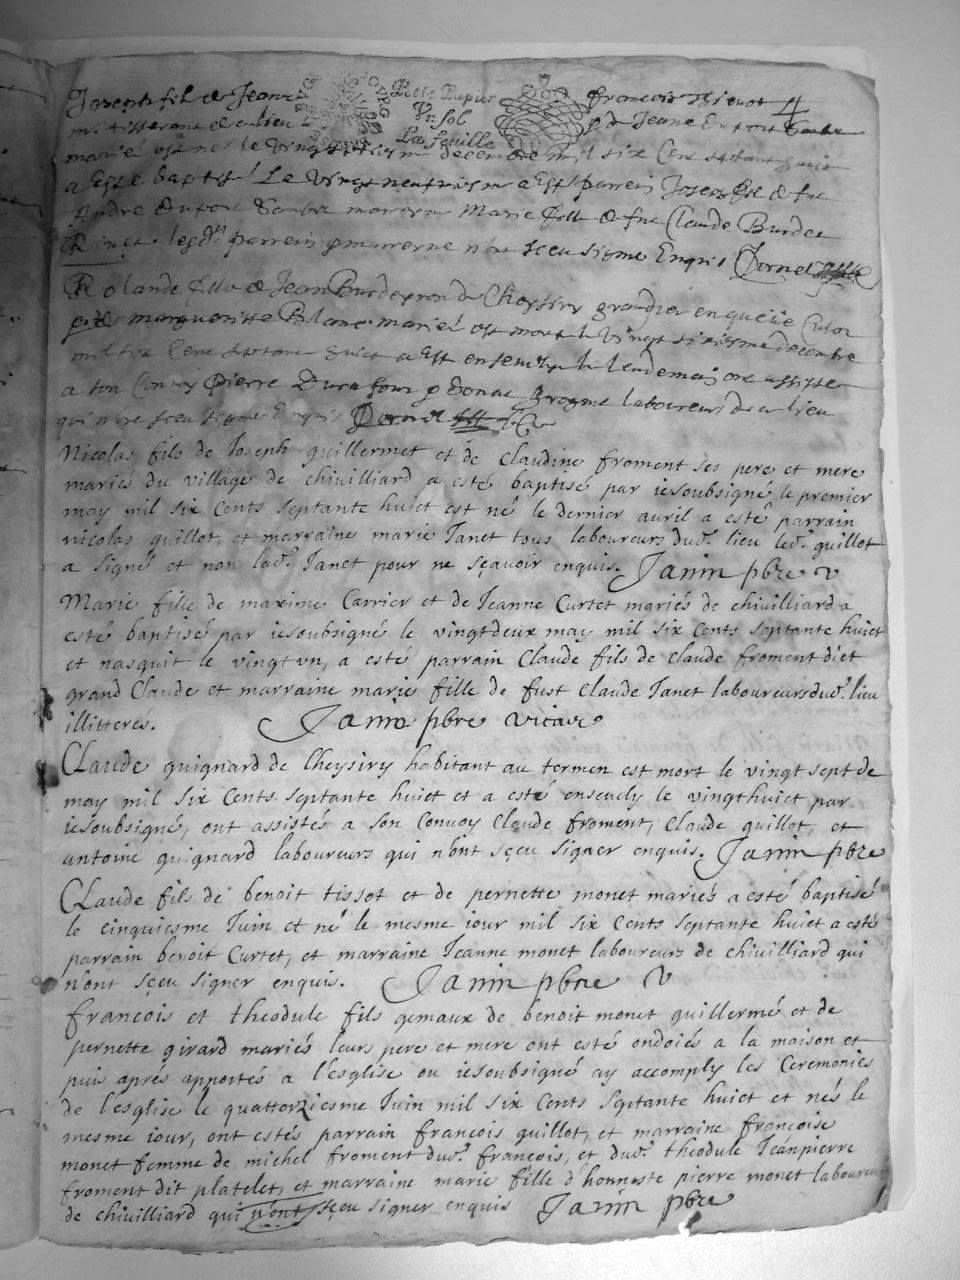 Joseph fils de Jean François Thienot
Petit Papier
Un sol
La feuille
ont tisserant de ce lieu p de Jeane Dupont
mariés est né le vingt decembre mil six Cent septante huit
a Esté baptisé Le vingt neufviesme a Esté parrein Joseph fils de fut
Andre Dupont marerne Marie fille de fut Claude Burdea
lesdts parrein & marerne n'on sceu signe Enquis Dornet
Rolande fille de Jean Burdeyron de Cheysiry grandjer en
& de marguerittte Blanc mariés est morte le vingt sixiesme decembre
mil six Cent septante huict a Est ensevelye le lendemain ont assisté
a son Convoy Pierre Durafour & Donat Brogne laboureurs de ce lieu
qui n'on sceu signe Enquis Dornet
Nicolas fils de Joseph guillermet et de Claudine froment ses pere et mere
mariés du village de chivilliard a esté baptisé par iesoubsigné le premier
may mil six Cents septante huict est né le dernier avril a esté parrain
nicolas guillot, et marraine marie Janet tous laboureurs dud. lieu led. guillot
a signé et non lad. Janet pour ne sçavoir enquis. Janin pbre v
Marie fille de maxime Carrier et de Jeanne Curtet mariés de chivilliard a
esté baptisée par iesoubsigné le vingtdeux may mil six Cents septante huict
et nasquit le vingt vn, a esté parrain Claude fils de claude froment dict
grand Claude et marraine marie fille de fust Claude Janet laboureurs dud. lieu
illitteres. Janin pbre vicaire
Claude guignard de Cheysiry habitant au termen est mort le vingt sept de
may mil six Cents septante huict et a esté ensevely le vingthuict par
iesoubsigné, ont assistés a son Convoy Claude froment, Claude guillot, et
antoine guignard laboureurs qui n'ont sçeu signer enquis. Janin pbre
Claude fils de benoit tissot et de pernette monet mariés a esté baptisé
le cinquiesme Juin et né le mesme iour mil six Cents septante huict a esté
parrain benoit Curtet, et marraine Jeanne monet laboureurs de chivilliard qui
n'ont sçeu signer enquis. Janin pbre V
francois et theodule fils gemaux de benoit monet guillermé et de
pernette girard mariés leurs pere et mere ont esté ondoiés a la maison et
puis aprés apportés a l'esglise ou iesoubsigné ay accomply les Ceremonies
de l'esglise le quattorziesme Juin mil six Cents septante huict et nés le
mesme iour, ont estés parrain françois guillot, et marraine françoise
monet femme de michel froment dud. françois, et dud. theodule Jeanpierre
froment dit platelet, et marraine marie fille d'honneste pierre monet laboureurs
de chivilliard qui n'ont sçeu signer enquis Janin pbre